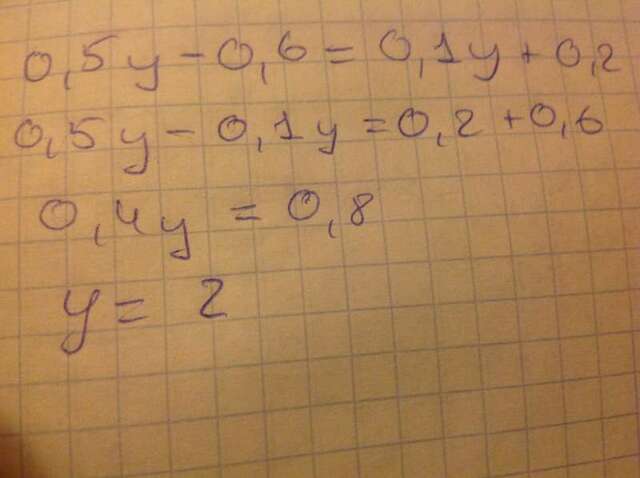 0,5y - 0,6 = 0,1y + 0,2
0,5y - 0,1y = 0,2 + 0,6
0,4y = 0,8
y = 2